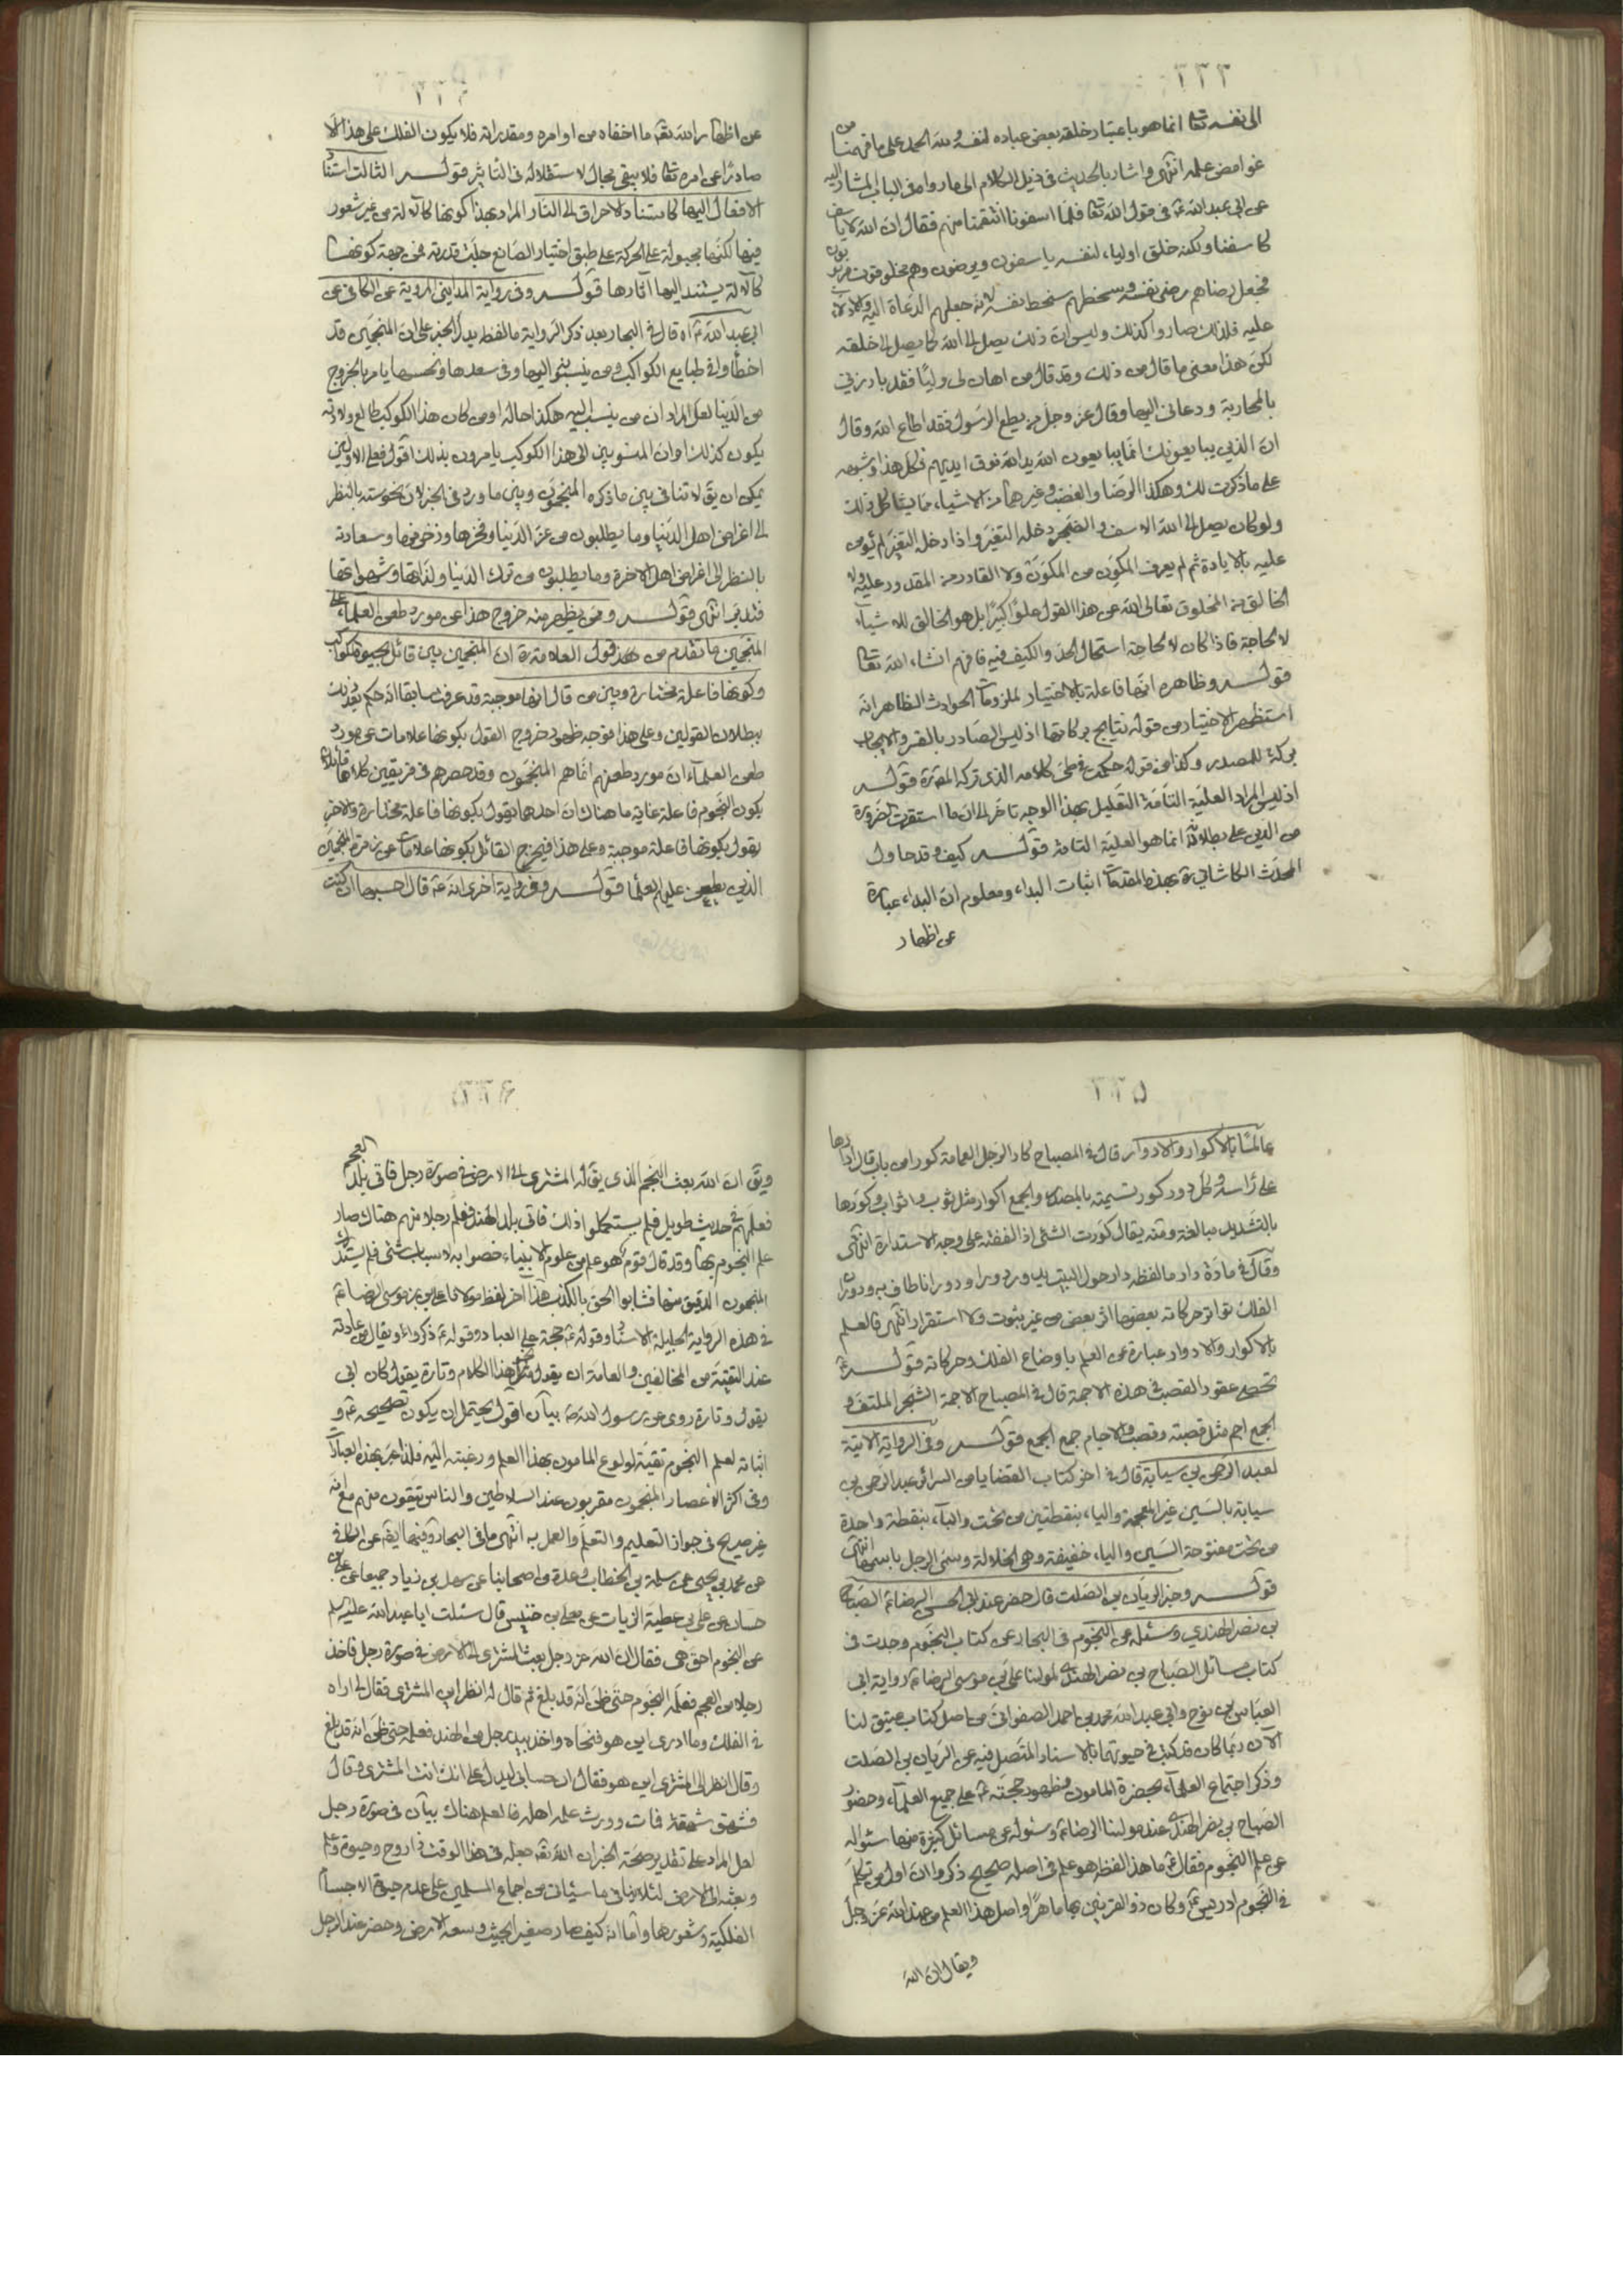 ٣٣٣
الى نفسه تعا انما هو باعتبار خلقه بعض عباده لنفسه ولله الحمد على ما فهمنا من
غوامض علمه انتهى واشار بالحديث في ذيل الكلام الى ما رواه في الباب المشار اليه
عن ابي عبد الله ع في قول الله تعا فلما اسفونا انتقمنا منهم فقال ان الله لا ياسف
كاسفنا ولكنه خلق اولياء لنفسه ياسفون ويرضون وهم مخلوقون مربوبون
فجعل رضاهم رضى نفسه وسخطهم سخط نفسه لانه جعلهم الدعاة اليه والادلاء
عليه فلذلك صاروا كذلك وليس ان ذلك يصل الى الله كما يصل الى خلقه
لكن هذا معنى ما قال من ذلك وقد قال من اهان لى وليا فقد بارزني
بالمحاربة ودعاني اليها وقال عز وجل من يطع الرسول فقد اطاع الله وقال
ان الذين يبايعونك انما يبايعون الله يد الله فوق ايديهم فكل هذا وشبهه
على ما ذكرت لك وهكذا الرضا والغضب وغيرهما من الاشياء مما يشاكل ذلك
ولو كان يصل الى الله الاسف والضجر دخله التغير واذا دخله التغير لم يؤمن
عليه بالابادة ثم لم يعرف المكون من المكون ولا القادر من المقدور عليه ولا
الخالق من المخلوق تعالى الله عن هذا القول علوا كبيرا بل هو الخالق للاشياء
لا لحاجة فاذا كان لا لحاجة استحال الحد والكيف فيه فافهم انشاء الله تعا
قوله وظاهره انها فاعلة بالاختيار لملزومات الحوادث الظاهر انه
استظهر الاختيار من قوله نتايج بركاتها اذ ليس الصادر بالقسر والايجاب
بركة للمصدر وكذا من قوله حكمت في طى كلامه الذي تركه المصنف قوله
اذ ليس المراد العلية التامة التعليل بهذا الوجه تاخر الى ان ما استقرت ضرورة
من الدين على بطلانه انما هو العلية التامة قوله كيف وقد حاول
المحدث الكاشاني ره بهذه المقدمات اثبات البداء ومعلوم ان البداء عبارة
عن اظهار
٣٣٤
عن اظهار الله تع ما اخفاه من اوامره ومقدراته فلا يكون الفلك على هذا الا
صادرا عن امره تعا فلا يبقى مجال لاستقلاله في التاثير قوله الثالث استناد
الافعال اليها كاستناد الاحراق الى النار المراد بهذا كونها كالالة من غير شعور
فيها لكنها مجبولة على الحركة على طبق اختيار الصانع جلت قدرته فمن جهة كونها
كالالة يستند اليها اثارها قوله وفي رواية المدايني المروية عن الكافي عن
ابي عبد الله ع اه قال في البحار بعد ذكر الرواية ما لفظه يدل الخبر على ان المنجمين قد
اخطأوا في طبايع الكواكب ومن ينسبونه اليها وفي سعدها ونحسها يامر بالخروج
من الدنيا لعل المراد ان من ينسب اليه هكذا حاله او من كان هذا الكوكب طالع ولادته
يكون كذلك او ان المنسوبين الى هذا الكوكب يامرون بذلك اقول فعلى الاولين
يمكن ان يق لا تنافى بين ما ذكره المنجمون وبين ما ورد في الخبر لان نحوسته بالنظر
الى اغراض اهل الدنيا وما يطلبون من عز الدنيا وفخرها وزخرفها وسعادته
بالنظر الى اغراض اهل الاخرة وما يطلبون من ترك الدنيا ولذاتها وشهواتها
فتدبر انتهى قوله ومن يظهر منه خروج هذا عن مورد طعن العلماء على
المنجمين ما تقدم من قول العلامة ره ان المنجمين بين قائل بحيوة الكواكب
وكونها فاعلة مختارة وبين من قال انها موجبة قد عرفت سابقا انه حكم بعد ذلك
ببطلان القولين وعلى هذا فوجه ظهور خروج القول بكونها علامات عن مورد
طعن العلماء ان مورد طعنهم انما هم المنجمون وقد حصرهم في فريقين كلاهما قائلان
بكون النجوم فاعلة غاية ما هناك ان احدهما يقول بكونها فاعلة مختارة والاخر
يقول بكونها فاعلة موجبة وعلى هذا فيخرج القائل بكونها علامات عن زمرة المنجمين
الذين يطعن عليهم العلماء قوله وفي رواية اخرى انه ع قال احسبها ان كنت
٣٣٥
عالما بالاكوار والادوار قال في المصباح كار الرجل العمامة كورا من باب قال ادارها
على راسه وكل دور كور تسمية بالمصدر والجمع اكوار مثل ثوب واثواب وكورها
بالتشديد مبالغة ومنه يقال كورت الشئ اذا لففته على وجه الاستدارة انتهى
وقال في مادة دار ما لفظه دار حول البيت يدور دورا ودورانا طاف به ودوران
الفلك تواتر حركاته بعضها اثر بعض من غير ثبوت ولا استقرار انتهى فالعلم
بالاكوار والادوار عبارة عن العلم باوضاع الفلك وحركاته قوله ع
تحصى عقود القصب في هذه الاجمة قال في المصباح الاجمة الشجر الملتف و
الجمع اجم مثل قصبة وقصب والاجام جمع الجمع قوله وفي الرواية الاتية
لعبد الرحمن بن سيابة قال في اخر كتاب القضايا من السرائر عبد الرحمن بن
سيابة بالسين غير المعجمة والياء بنقطتين من تحت والباء بنقطة واحدة
من تحت مفتوحة السين والياء خفيفة وهى الخلالة وسمى الرجل باسمها انتهى
قوله وخبر الريان بن الصلت قال حضر عند ابي الحسن الرضا ع الصباح
بن نصر الهندي وسئله عن النجوم في البحار عن كتاب النجوم وجدت في
كتاب مسائل الصباح بن نصر الهندي لمولينا على بن موسى الرضا ع رواية ابي
العباس بن نوح وابي عبد الله محمد بن احمد الصفواني من اصل كتاب عتيق لنا
الآن ربما كان قد كتب في حيوتهما بالاسناد المتصل فيه عن الريان بن الصلت
وذكر اجتماع العلماء بحضرة المامون وظهور حجته ع على جميع العلماء وحضور
الصباح بن نصر الهندي عند مولينا الرضا ع وسئوله عن مسائل كثيرة منها سئواله
عن علم النجوم فقال ع ما هذا لفظه هو علم في اصله صحيح ذكروا ان اول من تكلم
في النجوم ادريس ع وكان ذو القرنين بها ماهرا واصل هذا العلم من عند الله عز وجل
ويقال ان الله
٣٣٦
ويق ان الله بعث النجم الذي يق له المشترى الى الارض في صورة رجل فاتى بلد العجم
فعلمهم في حديث طويل فلم يستكملوا ذلك فاتى بلد الهند فعلم رجلا منهم فمن هناك صار
علم النجوم بها وقد قال قوم هو علم من علوم الانبياء خصوا به لاسباب شتى فلم يستدرك
المنجمون الدقيق منها فشابوا الحق بالكذب هذا آخر لفظ مولانا على بن موسى الرضا ع
في هذه الرواية الجليلة الاسناد وقوله ع حجة على العباد وقوله ع ذكروا ويقال من عادته
عند التقية من المخالفين والعامة ان يقول مثل هذا الكلام وتارة يقول كان ابي
يقول وتارة روى عن رسول الله ص بيان اقول يحتمل ان يكون تصحيحه ع و
اثباته لعلم النجوم تقية لولوع المامون بهذا العلم ورغبته اليه فلذا عبر بهذه العبارات
وفي اكثر الاعصار المنجمون مقربون عند السلاطين والناس يتقون منهم مع انه
غير صريح في جواز التعليم والتعلم والعمل به انتهى ما في البحار وفيها ايضا عن الكافي
عن محمد بن يحيى عن سلمة بن الخطاب وعدة من اصحابنا عن سهل بن زياد جميعا عن على بن
حسان عن على بن عطية الزيات عن معلى بن خنيس قال سئلت ابا عبد الله عليه السلم
عن النجوم احق هى فقال ان الله عز وجل بعث المشترى الى الارض في صورة رجل فاخذ
رجلا من العجم فعلمه النجوم حتى ظن انه قد بلغ ثم قال له انظر اين المشترى فقال ما اراه
في الفلك وما ادرى اين هو فنحاه واخذ بيد رجل من الهند فعلمه حتى ظن انه قد بلغ
وقال انظر الى المشترى اين هو فقال ان حسابي ليدل على انك انت المشترى وقال
فشهق شهقة فمات وورث علمه اهله فالعلم هناك بيان في صورة رجل
لعل المراد على تقدير صحة الخبر ان الله تع جعله في هذا الوقت ذا روح وحيوة وعلم
وبعثه الى الارض لئلا ينافى ما سيأتي من اجماع المسلمين على عدم حيوة الاجسام
الفلكية وشعورها واما انه كيف صار صغيرا بحيث وسعه الارض وحضر عند الرجل